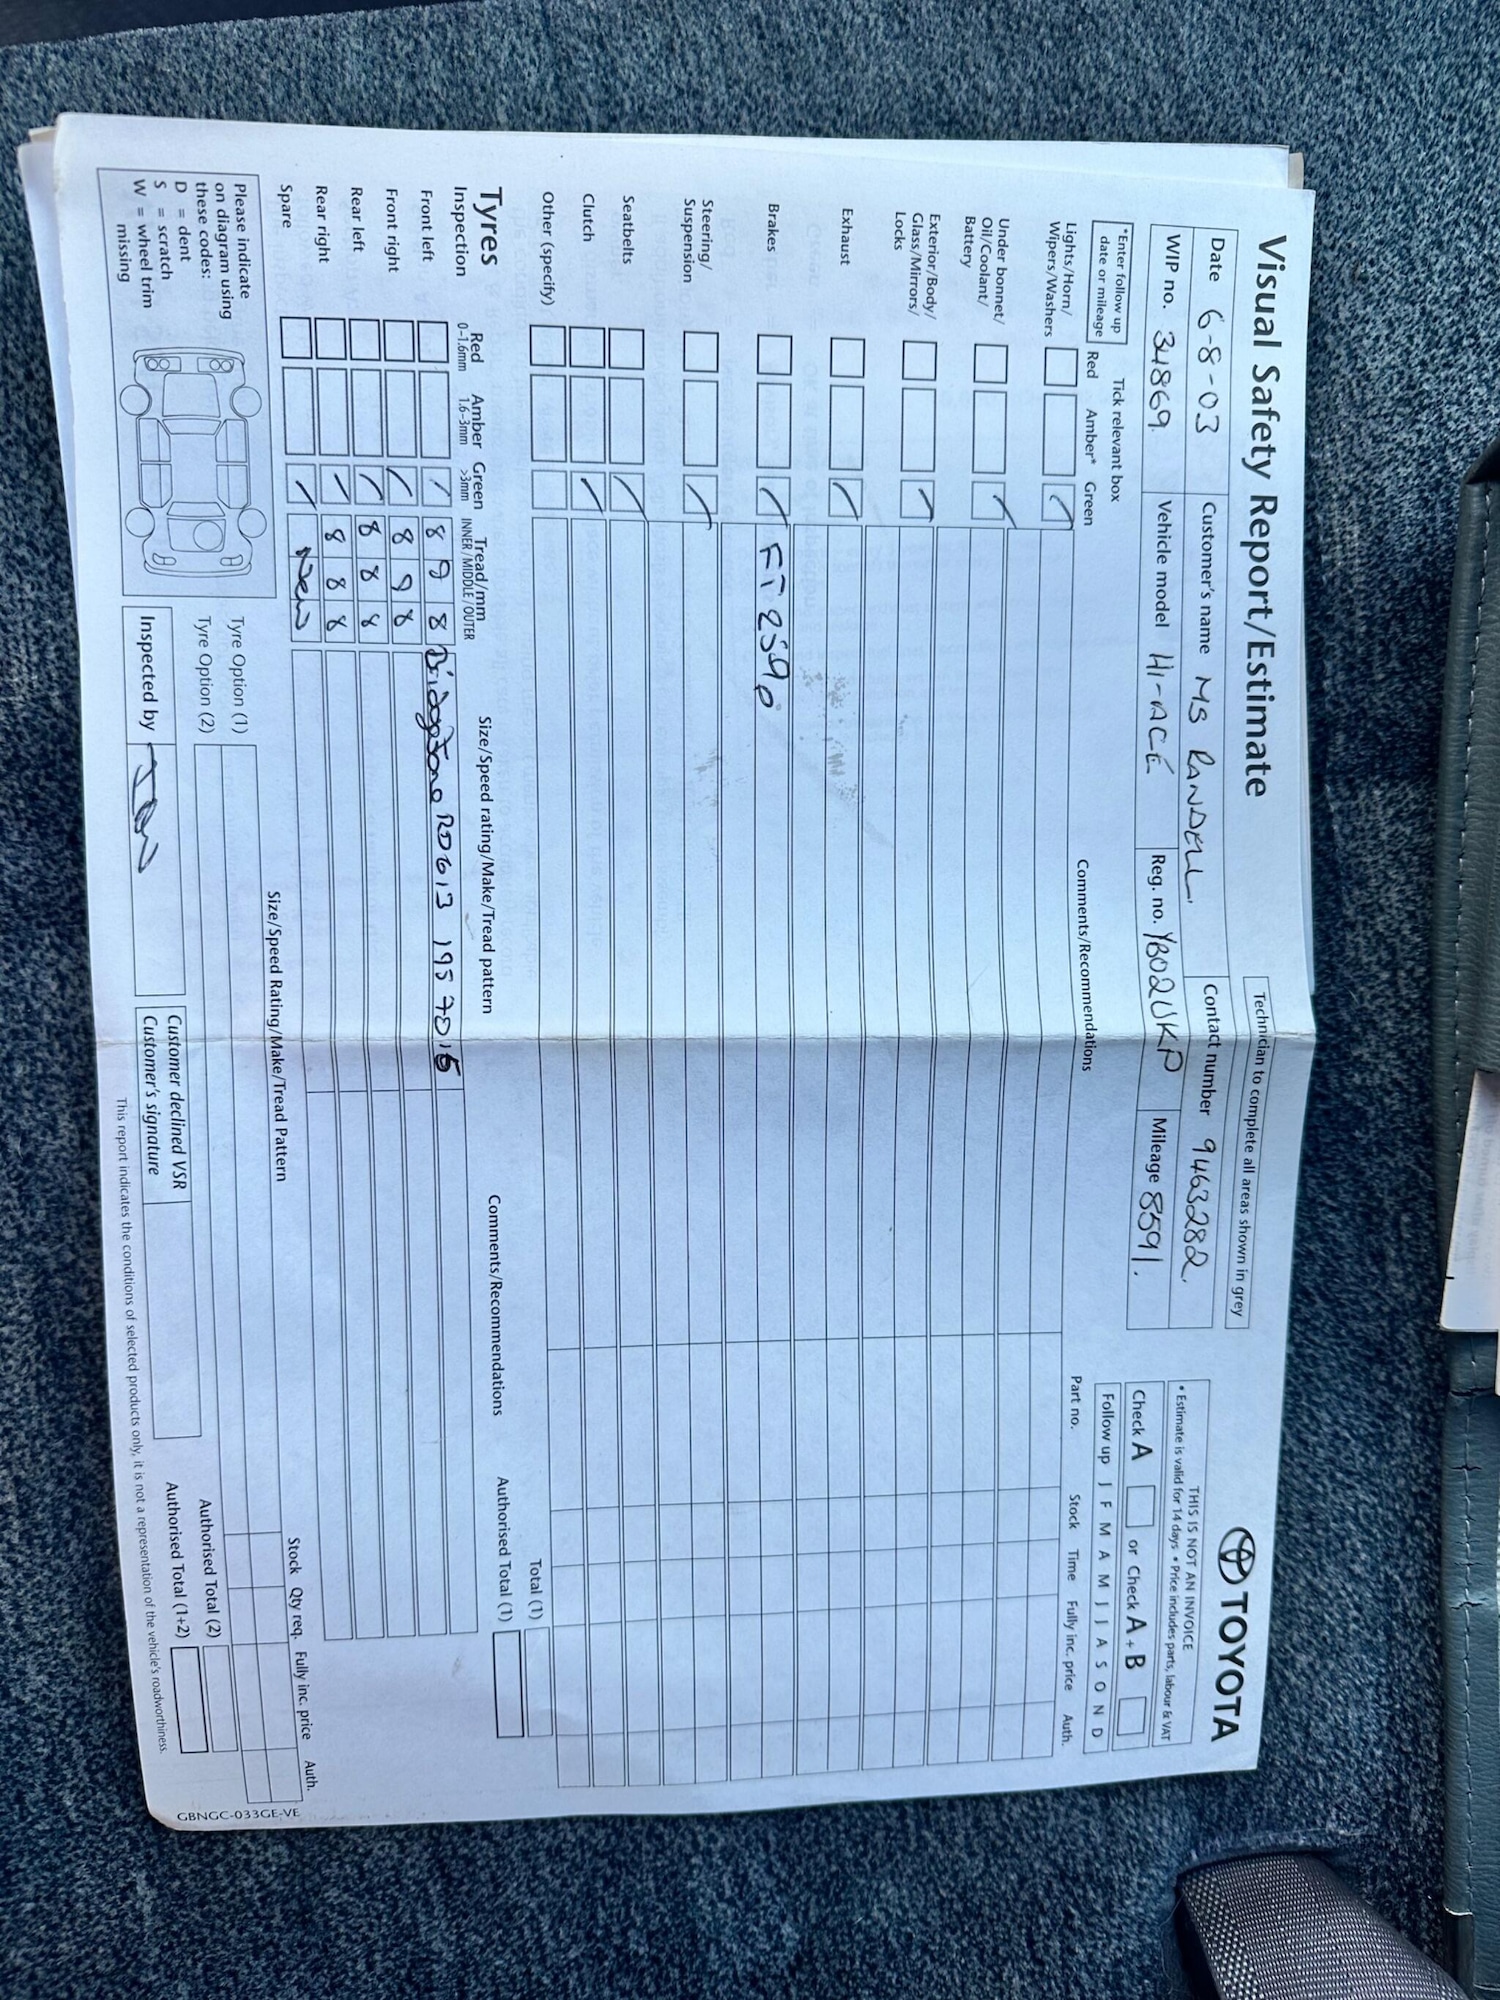 Visual Safety Report/Estimate
Technician to complete all areas shown in grey
TOYOTA
THIS IS NOT AN INVOICE
• Estimate is valid for 14 days • Price includes parts, labour & VAT
Date 6-8-03 Customer's name MS RANDELL. Contact number 9463282.
WIP no. 34869. Vehicle model HI-ACE Reg. no. YB02UKP Mileage 8591.
Check A or Check A + B
Follow up J F M A M J J A S O N D
*Enter follow up date or mileage
Tick relevant box
Red Amber* Green Comments/Recommendations Part no. Stock Time Fully inc. price Auth.
Lights/Horn/
Wipers/Washers
Under bonnet/
Oil/Coolant/
Battery
Exterior/Body/
Glass/Mirrors/
Locks
Exhaust
Brakes
Steering/
Suspension
Seatbelts
Clutch
Other (specify)
Total (1)
Authorised Total (1)
Tyres
Inspection
Red
0–1.6mm
Amber
1.6–3mm
Green
>3mm
Tread/mm
INNER/MIDDLE/OUTER
Size/Speed rating/Make/Tread pattern
Comments/Recommendations
Front left 8 9 8 RD613 195 70 15
Front right 8 9 8
Rear left 8 8 8
Rear right 8 8 8
Spare New
Please indicate
on diagram using
these codes:
D = dent
S = scratch
W = wheel trim
missing
Size/Speed Rating/Make/Tread Pattern
Stock Qty req. Fully inc. price Auth.
Tyre Option (1)
Tyre Option (2)
Authorised Total (2)
Authorised Total (1+2)
Inspected by
Customer declined VSR
Customer's signature
This report indicates the conditions of selected products only, it is not a representation of the vehicle's roadworthiness.
GBNGC-033GE-VE